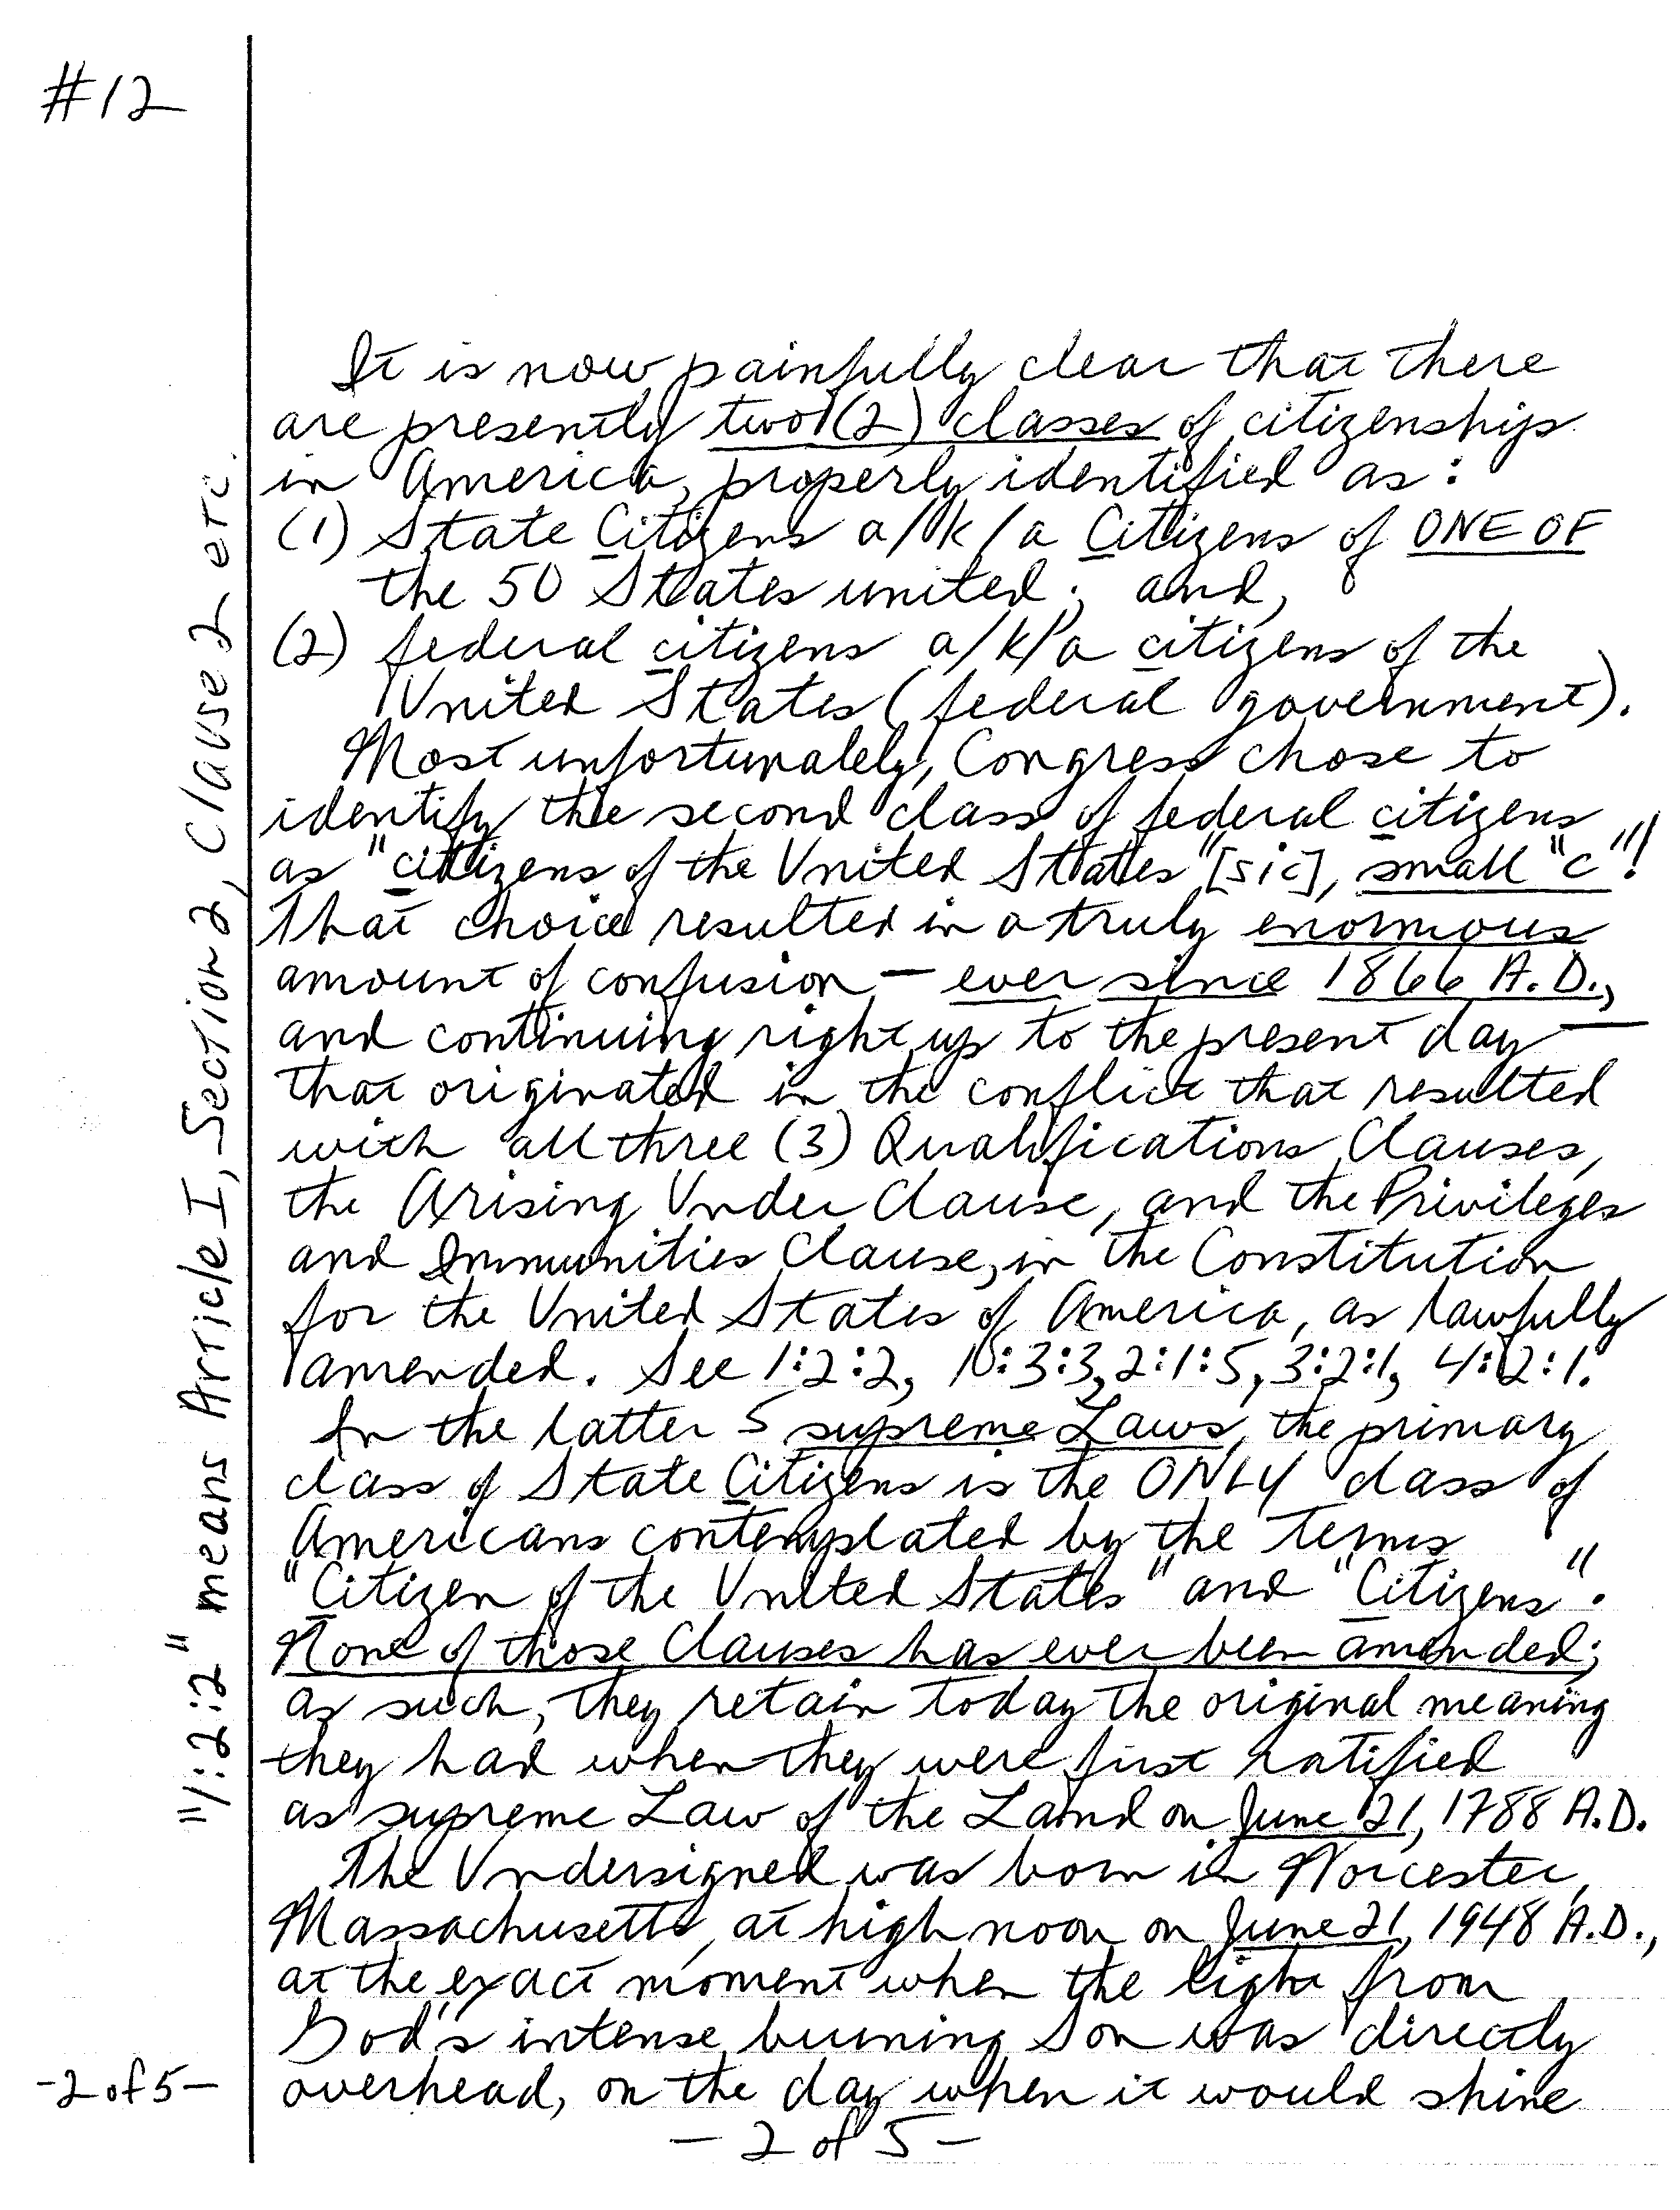 #12
It is now painfully clear that there
are presently two (2) classes of citizenship
in America, properly identified as:
(1) State Citizens a/k/a Citizens of ONE OF
the 50 States united; and,
(2) federal citizens a/k/a citizens of the
United States (federal government).
Most unfortunately, Congress chose to
identify the second class of federal citizens
as "citizens of the United States" [sic], small "c"!
That choice resulted in a truly enormous
amount of confusion — ever since 1866 A.D.,
and continuing right up to the present day —
that originated in the conflict that resulted
with all three (3) Qualifications Clauses,
the Arising Under Clause, and the Privileges
and Immunities Clause, in the Constitution
for the United States of America, as lawfully
amended. See 1:2:2, 1:3:3, 2:1:5, 3:2:1, 4:2:1.
In the latter 5 supreme Laws, the primary
class of State Citizens is the ONLY class of
Americans contemplated by the terms
"Citizen of the United States" and "Citizens".
None of those Clauses has ever been amended;
as such, they retain today the original meaning
they had when they were first ratified
as supreme Law of the Land on June 21, 1788 A.D.
The Undersigned was born in Worcester,
Massachusetts, at high noon on June 21, 1948 A.D.,
at the exact moment when the light from
God's intense burning Son was directly
overhead, on the day when it would shine
- 2 of 5 -
"1:2:2" means Article I, Section 2, Clause 2 etc.
- 2 of 5 -